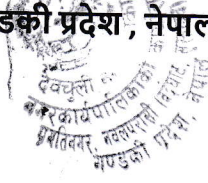 डकी प्रदेश, नेपाल
देवचुली
नगरकार्यपालिकाको
प्रगतिनगर, नवलपरासी
गण्डकी प्रदेश, नेपाल